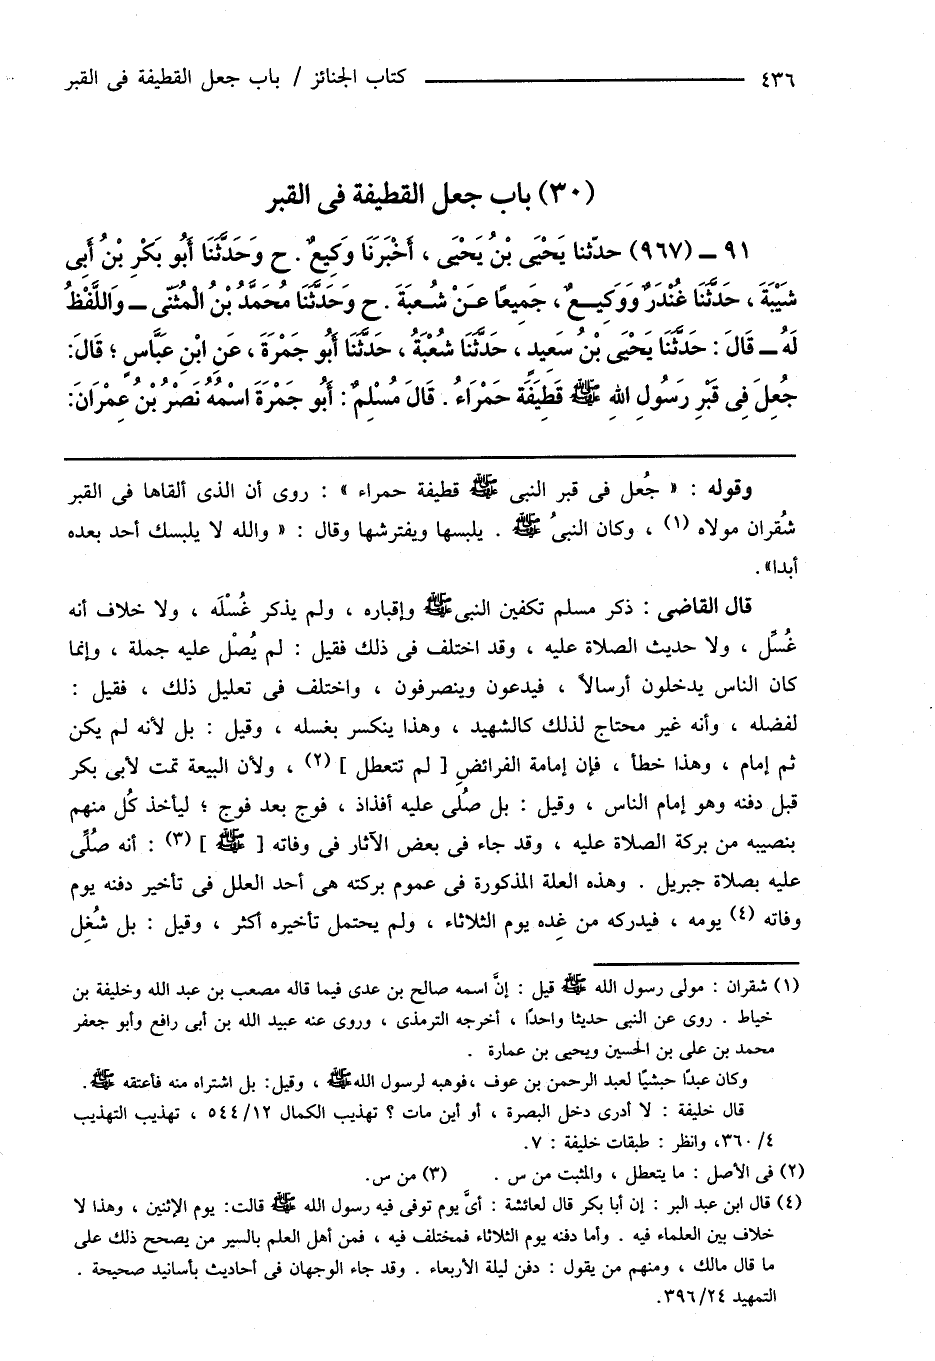 ٤٣٦ كتاب الجنائز / باب جعل القطيفة فى القبر
(٣٠) باب جعل القطيفة فى القبر
٩١ ـ (٩٦٧) حدّثنا يَحْيَى بْنُ يَحْيَى ، أَخْبَرَنَا وَكِيعٌ . ح وَحَدَّثَنَا أَبُو بَكْرِ بْنُ أَبِى
شَيْبَةَ ، حَدَّثَنَا غُنْدَرٌ وَوَكِيعٌ ، جَمِيعًا عَنْ شُعبَةَ . ح وَحَدَّثَنَا مُحَمَّدُ بْنُ الْمُثَنَّى ـ وَاللَّفْظُ
لَهُ ـ قَالَ : حَدَّثَنَا يَحْيَى بْنُ سَعِيدٍ ، حَدَّثَنَا شُعْبَةُ ، حَدَّثَنَا أَبُو جَمْرَةَ ، عَنِ ابْنِ عَبَّاسٍ ؛ قَالَ:
جُعِلَ فِى قَبْرِ رَسُولِ اللهِ ﷺ قَطِيفَة حَمْرَاءُ . قَالَ مُسْلِمٌ : أَبُو جَمْرَةَ اسْمُهُ نَصْرُ بْنُ عِمْرَانَ:
وقوله : « جُعل فى قبر النبى ﷺ قطيفة حمراء » : روى أن الذى ألقاها فى القبر
شُقران مولاه (١) ، وكان النبىُ ﷺ . يلبسها ويفترشها وقال : « والله لا يلبسك أحد بعده
أبدا» .
قال القاضى : ذكر مسلم تكفين النبى ﷺ وإقباره ، ولم يذكر غُسْلَه ، ولا خلاف أنه
غُسِّل ، ولا حديث الصلاة عليه ، وقد اختلف فى ذلك فقيل : لم يُصْل عليه جملة ، وإنما
كان الناس يدخلون أرسالاً ، فيدعون وينصرفون ، واختلف فى تعليل ذلك ، فقيل :
لفضله ، وأنه غير محتاج لذلك كالشهيد ، وهذا ينكسر بغسله ، وقيل : بل لأنه لم يكن
ثم إمام ، وهذا خطأ ، فإن إمامة الفرائض [ لم تتعطل ] (٢) ، ولأن البيعة تمت لأبى بكر
قبل دفنه وهو إمام الناس ، وقيل : بل صُلى عليه أفذاذ ، فوج بعد فوج ؛ ليأخذ كُل منهم
بنصيبه من بركة الصلاة عليه ، وقد جاء فى بعض الآثار فى وفاته [ ﷺ ] (٣) : أنه صُلِّى
عليه بصلاة جبريل . وهذه العلة المذكورة فى عموم بركته هى أحد العلل فى تأخير دفنه يوم
وفاته (٤) يومه ، فيدركه من غِده يوم الثلاثاء ، ولم يحتمل تأخيره أكثر ، وقيل : بل شُغل
(١) شقران : مولى رسول الله ﷺ قيل : إنَّ اسمه صالح بن عدى فيما قاله مصعب بن عبد الله وخليفة بن
خياط . روى عن النبى حديثا واحدًا ، أخرجه الترمذى ، وروى عنه عبيد الله بن أبى رافع وأبو جعفر
محمد بن على بن الحسين ويحيى بن عمارة .
وكان عبدًا حبشيًا لعبد الرحمن بن عوف ،فوهبه لرسول الله ﷺ ، وقيل: بل اشتراه منه فأعتقه ﷺ .
قال خليفة : لا أدرى دخل البصرة ، أو أين مات ؟ تهذيب الكمال ٥٤٤/١٢ ، تهذيب التهذيب
٣٦٠/٤، وانظر : طبقات خليفة : ٧.
(٢) فى الأصل : ما يتعطل ، والمثبت من س . (٣) من س.
(٤) قال ابن عبد البر : إن أبا بكر قال لعائشة : أىَّ يوم توفى فيه رسول الله ﷺ قالت: يوم الإثنين ، وهذا لا
خلاف بين العلماء فيه . وأما دفنه يوم الثلاثاء فمختلف فيه ، فمن أهل العلم بالسير من يصحح ذلك على
ما قال مالك ، ومنهم من يقول : دفن ليلة الأربعاء . وقد جاء الوجهان فى أحاديث بأسانيد صحيحة .
التمهيد ٣٩٦/٢٤.